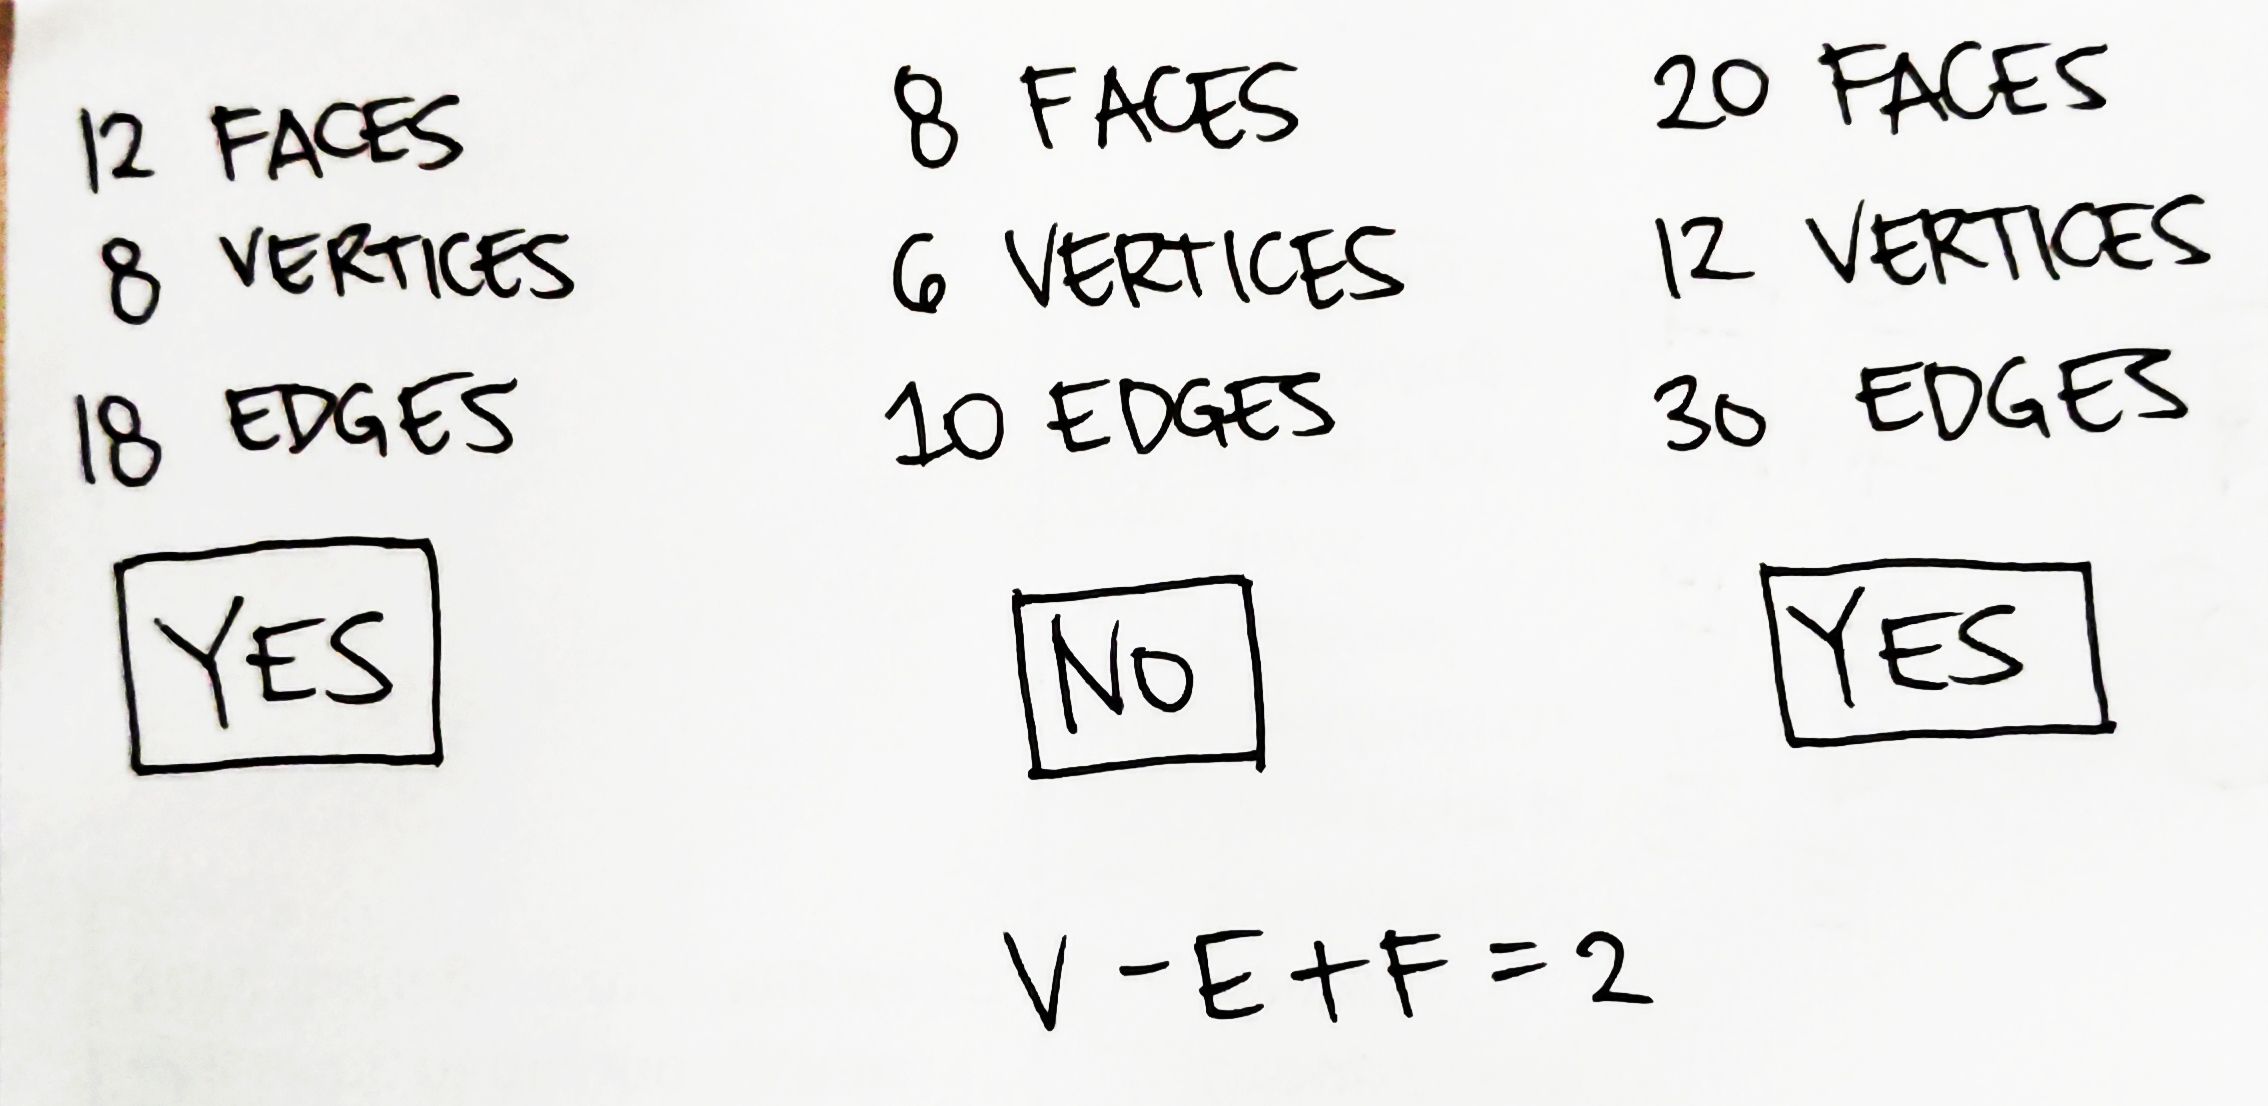 12 FACES
8 VERTICES
18 EDGES
YES
8 FACES
6 VERTICES
10 EDGES
NO
20 FACES
12 VERTICES
30 EDGES
YES
V - E + F = 2